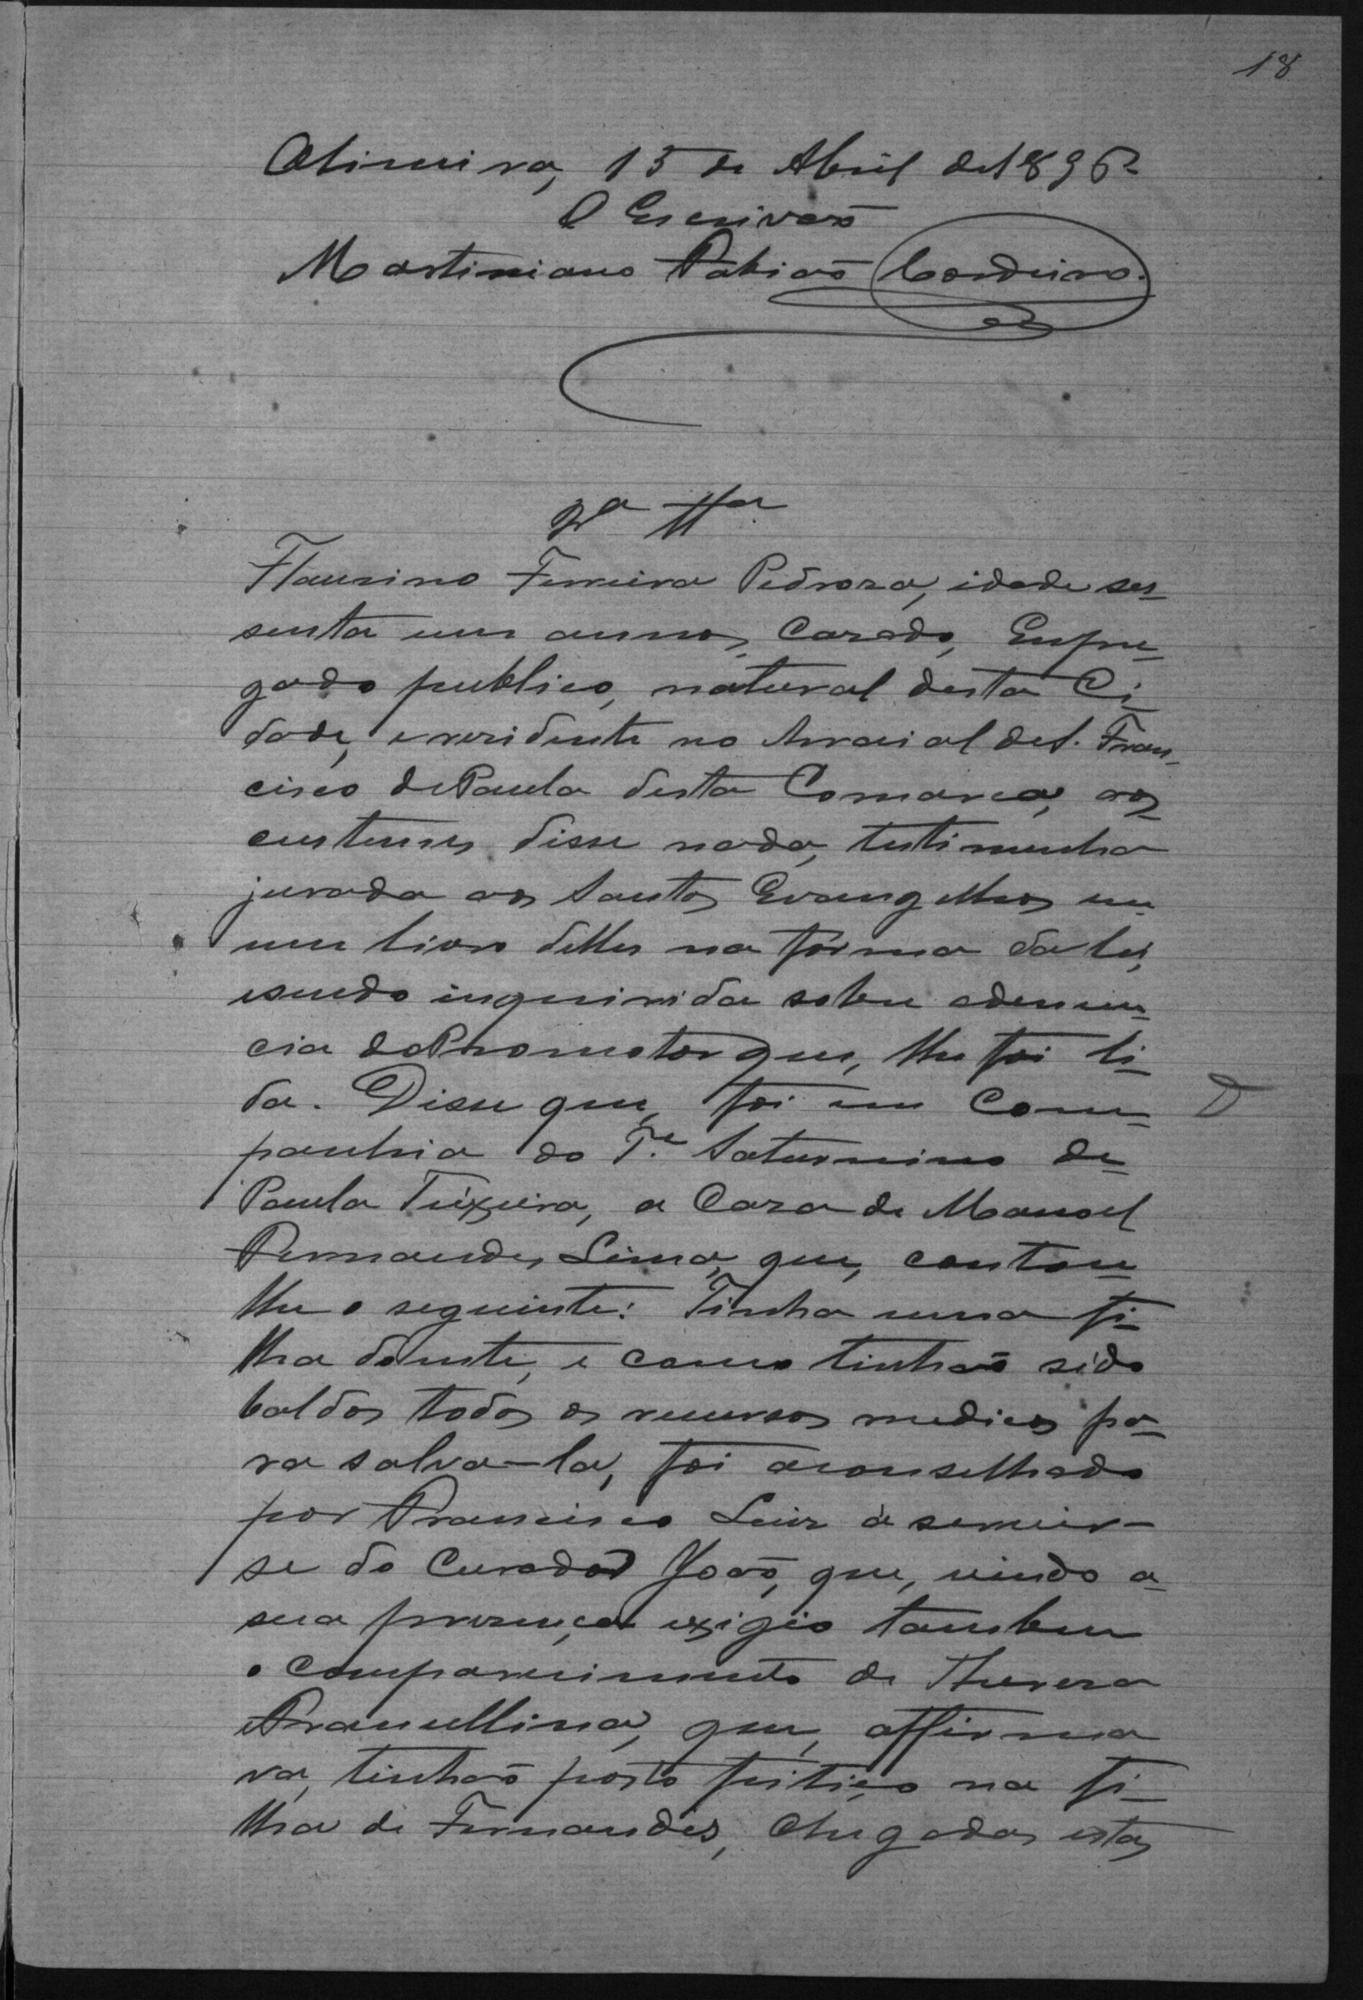 18
Oliveira, 15 de Abril de 1896
O Escrivão
Martiniano Fabião Cordeiro.
2ª Ttª
Flausino Ferreira Pedroza, idade ses-
senta um annos, Cazado, Empre-
gado publico, natural desta Ci-
dade, e rezidente no Arraial de S. Fran-
cisco de Paula desta Comarca, aos
custumes disse nada, testimunha
jurada aos Santos Evangelhos em
um livro delles na fórma da lei,
e sendo inquirida sobre a denun-
cia do Promotor que, lhe foi li-
da. Disse que, foi em Com-
panhia do Te. Saturnino de
Paula Teixeira, a Caza de Manoel
Fernandes Lima, que, contou-
lhe o seguinte: Tinha uma fi-
lha doente, e como tinhão sido
baldos todos os recursos medicos pa-
ra salva-la, foi aconselhado
por Francisco Luiz á servir-
se do Curador João, que, vindo a
sua prezença exigio tambem
o comparecimento de Thereza
e Francellina, que, affirma
va, tinhão posto feitiço na fi-
lha de Fernandes, Chegadas estas